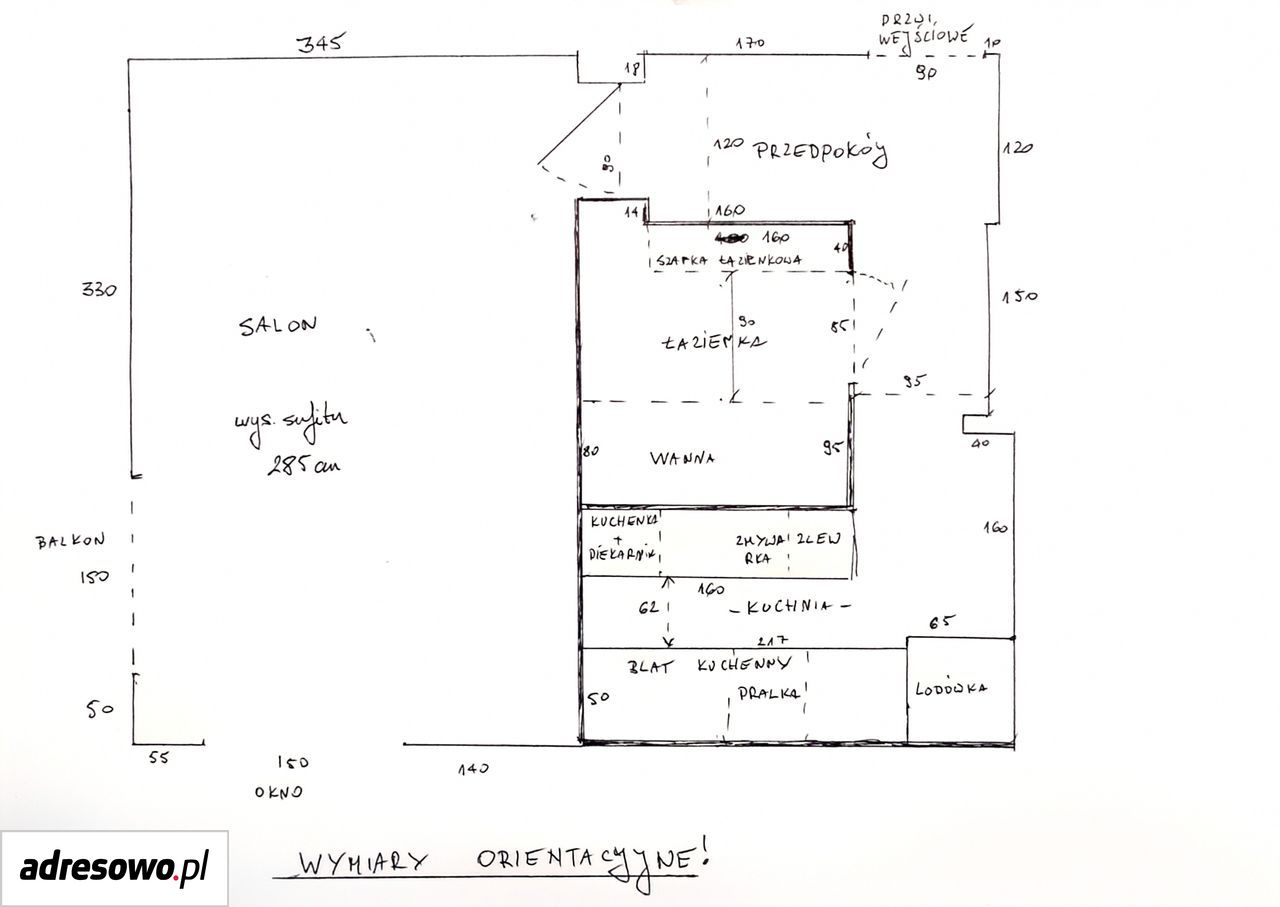 DRZWI
WEJŚCIOWE
345
170
10
18
90
120
PRZEDPOKÓJ
120
90
14
160
160
40
SZAFKA ŁAZIENKOWA
330
150
SALON
90
85
ŁAZIENKA
95
wys. sufitu
285 cm
40
80
WANNA
95
KUCHENKA
+
PIEKARNIK
ZMYWA
RKA
ZLEW
160
BALKON
150
160
62
-KUCHNIA-
65
217
BLAT KUCHENNY
PRALKA
LODÓWKA
50
50
55
150
OKNO
140
WYMIARY ORIENTACYJNE!
adresowo.pl